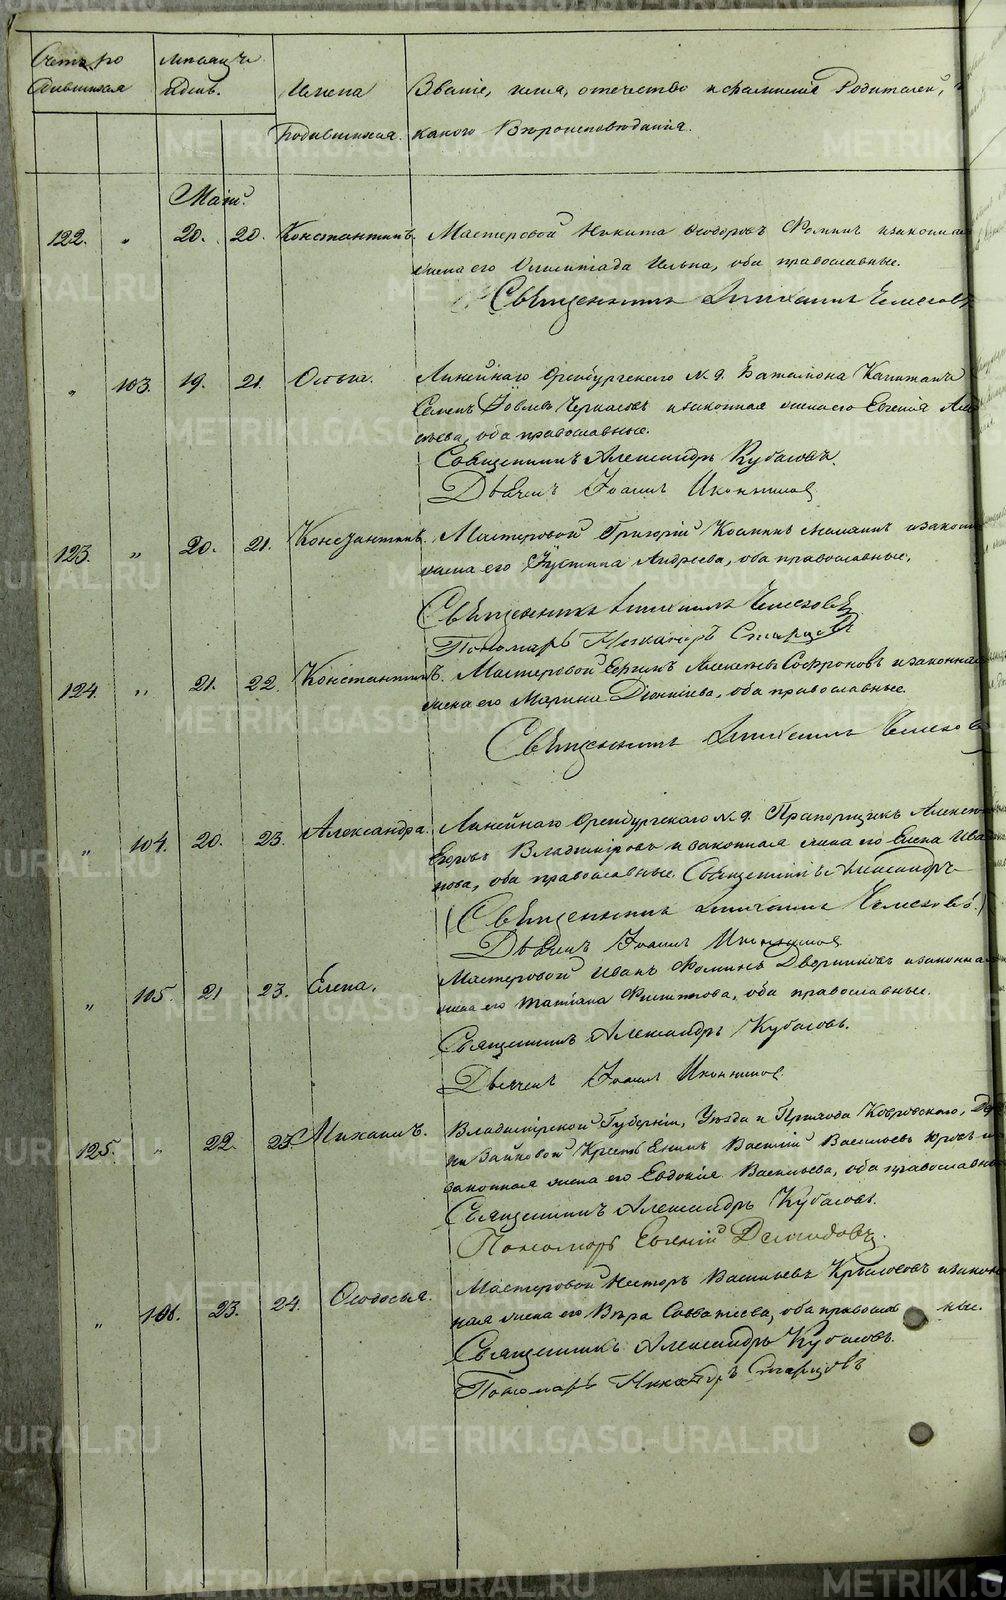 Счетъ ро
дившихся
Мѣсяцъ
и день.
Имена
родившихся.
Званіе, имя, отчество и фамилія Родителей, и
какого Вѣроисповѣданія.
Май.
122. „ 20. 20. Константинъ. Мастеровой Никита Ѳеодоровъ Фоминъ и законная
жена его Олимпіада Ильина, оба православные.
Священникъ Михаилъ
„ 103. 19. 21. Ольга. Линейнаго Оренбургскаго № 9. Баталіона Капитанъ
Семенъ Іовлевъ Черкасовъ и законная жена его Евгенія Але
сьева, оба православные.
Священникъ Александръ Кубасовъ.
Дьячекъ Іоаннъ Иконниковъ
123. „ 20. 21. Константинъ. Мастеровой Григорій Козминъ и законн
жена его Іустина Андреева, оба православные.
Священникъ Михаилъ
Пономарь Никаноръ Старцовъ
124. „ 21. 22. Константинъ. Мастеровой Сергій Алексѣевъ Софроновъ и законная
жена его Марина Діонисіева, оба православные.
Священникъ Михаилъ
„ 104. 20. 23. Александра. Линейнаго Оренбургскаго № 9. Прапорщикъ Алексѣй
Егоровъ Владиміровъ и законная жена его Елена Ива
нова, оба православные. Священникъ Александръ
(Священникъ Михаилъ
Дьячекъ Іоаннъ Иконниковъ
„ 105. 21 23. Елена. Мастеровой Иванъ Фоминъ Дворниковъ и законная
жена его Татіана Филиппова, оба православные.
Священникъ Александръ Кубасовъ.
Дьячекъ Іоаннъ Иконниковъ
125. „ 22. 23. Михаилъ. Владимірской Губерніи, Уѣзда и Прихода Ковровскаго, Дер
ни Зайковой Крестьянинъ Василій Васильевъ и
законная жена его Евдокія Васильева, оба православные
Священникъ Александръ Кубасовъ.
Пономарь Евгеній Демидовъ.
„ 106. 23. 24. Ѳеодосья. Мастеровой Несторъ Васильевъ Крылосовъ и закон
ная жена его Вѣра Савватіева, оба православные.
Священникъ Александръ Кубасовъ.
Пономарь Никаноръ Старцовъ
METRIKI.GASO-URAL.RU